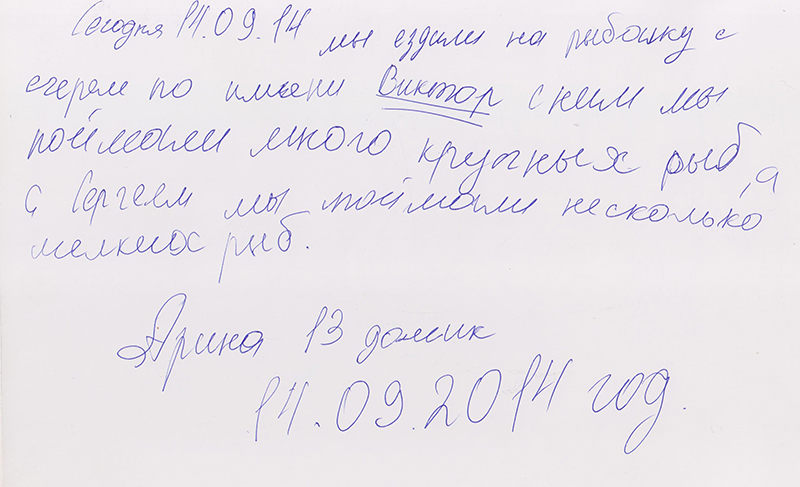 Сегодня 14.09.14 мы ездили на рыбалку с
егерем по имени Виктор с ним мы
поймали много крупных рыб, а
с Сергеем мы поймали несколько
мелких рыб.
Арина 13 домик
14.09.2014 год.